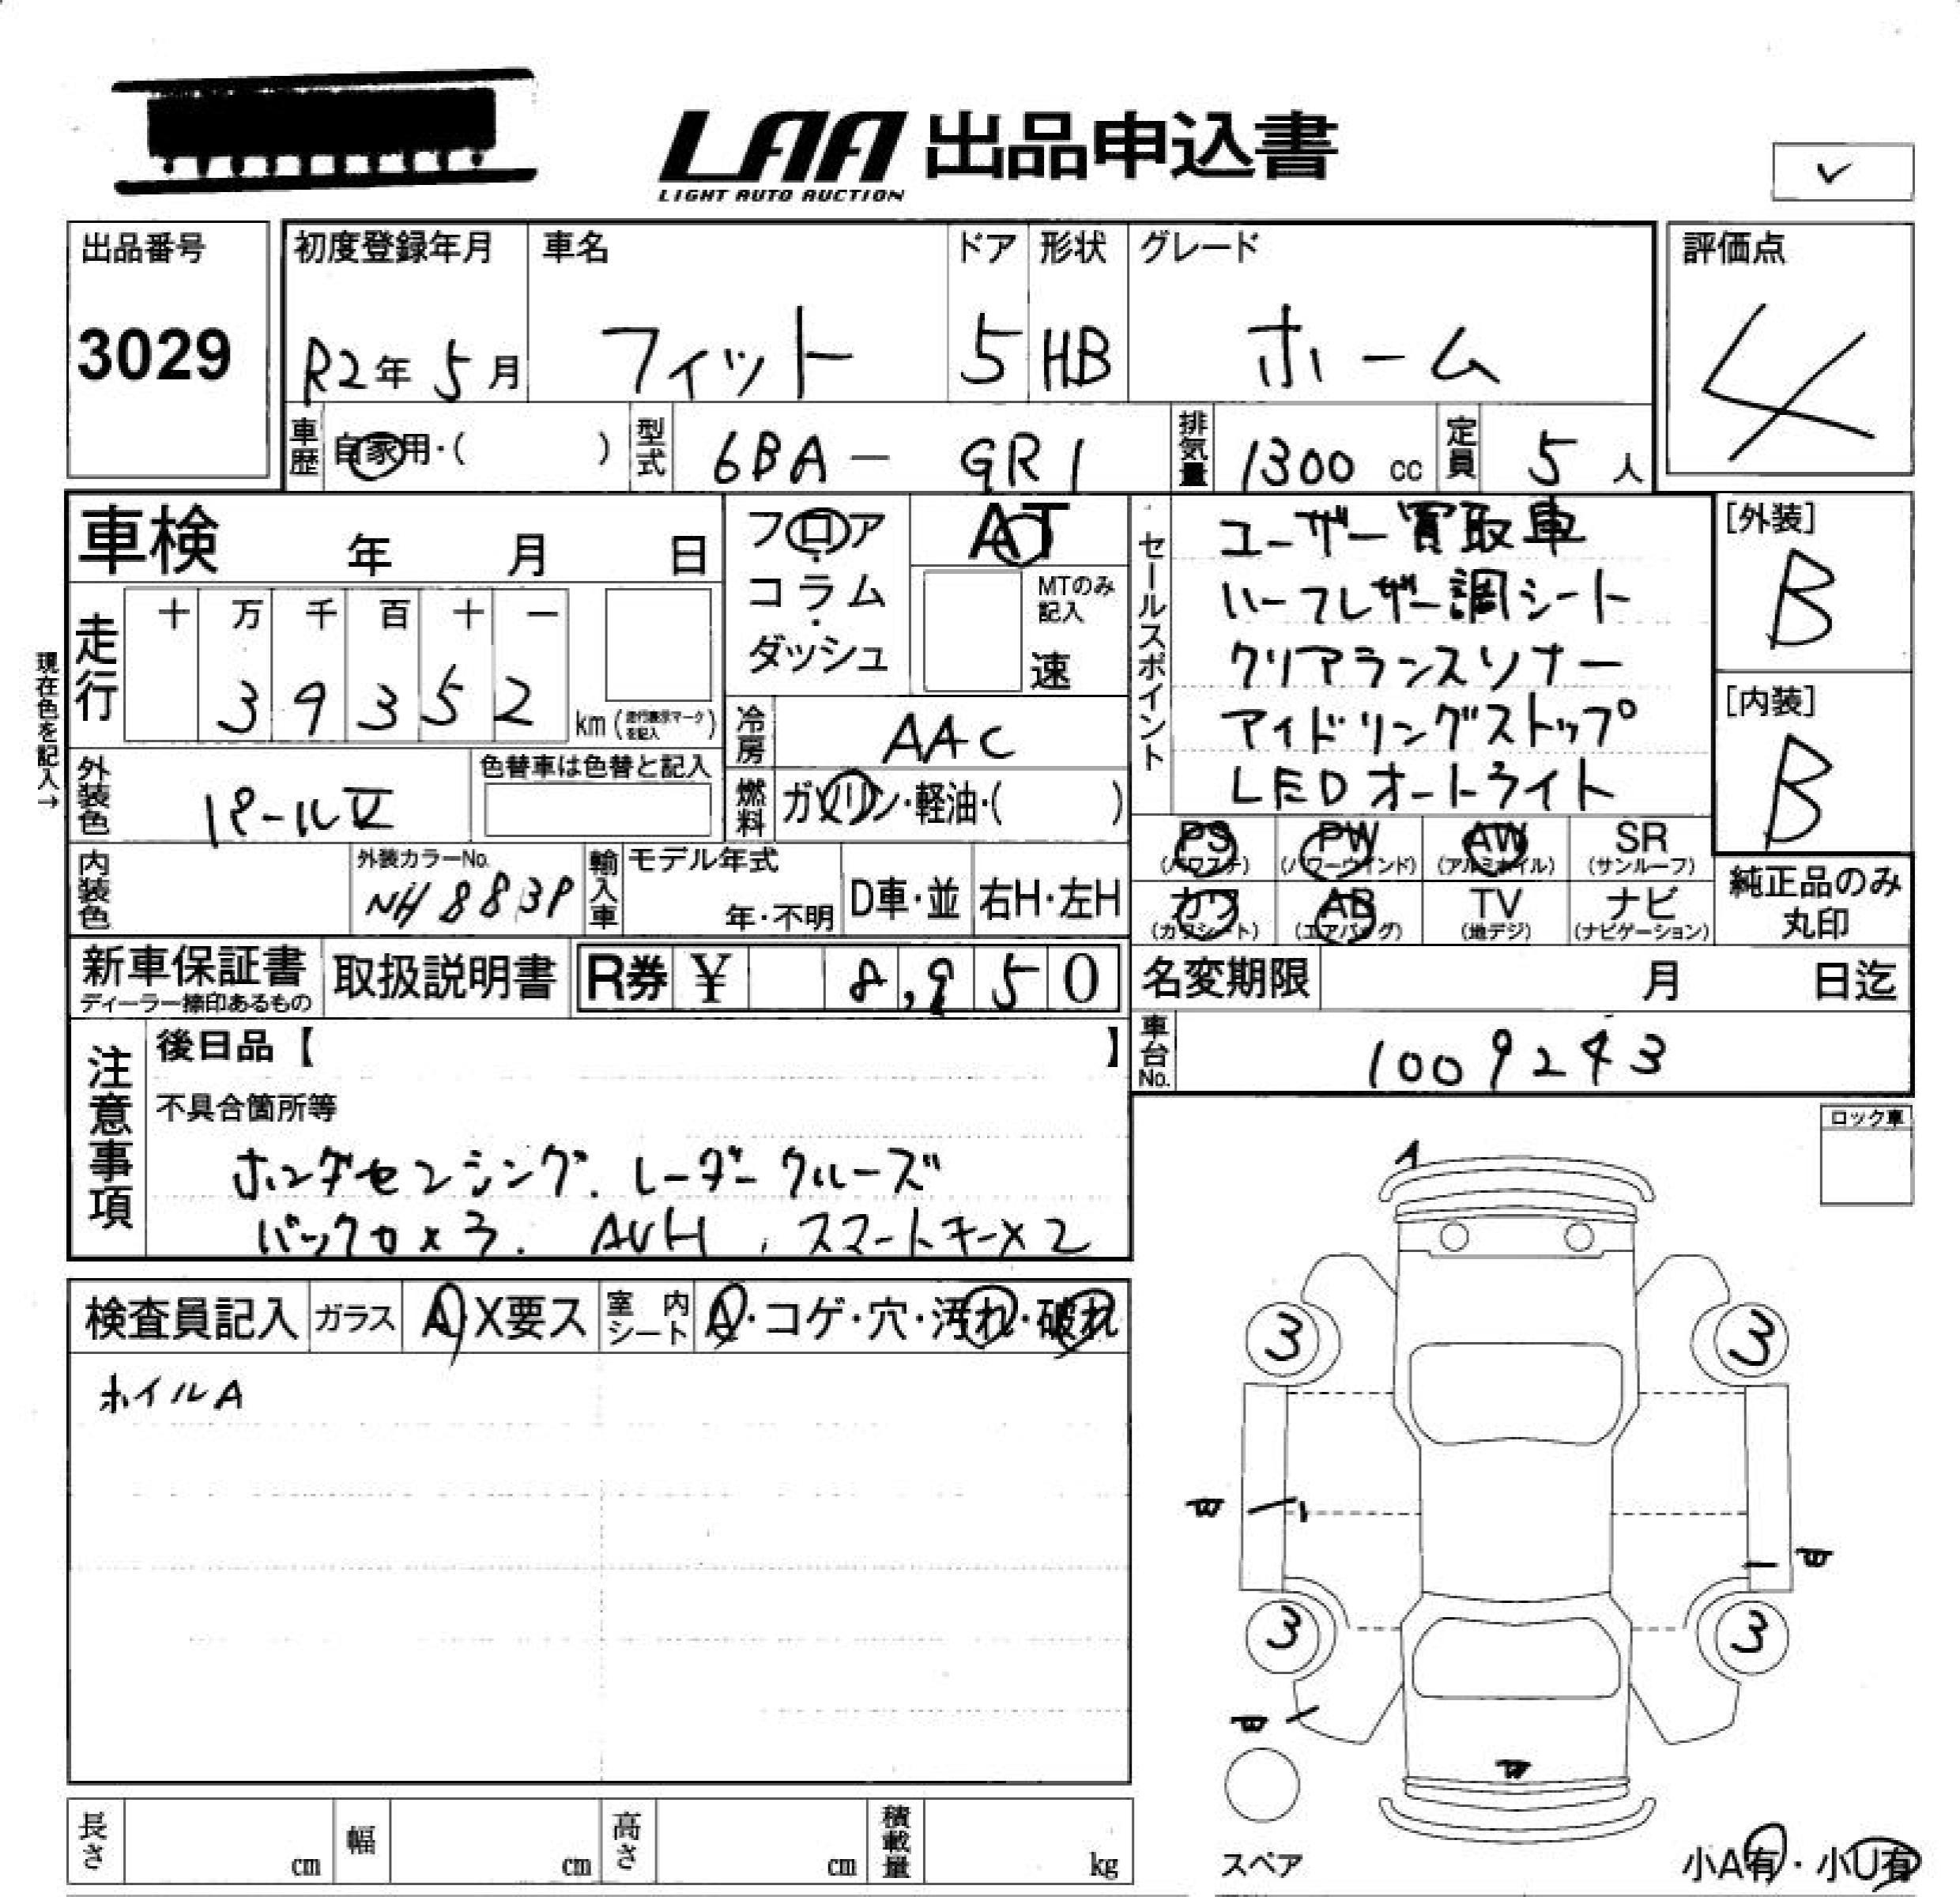 LAA 出品申込書
LIGHT AUTO AUCTION
✓
出品番号
3029
初度登録年月
R2年 5月
車名
フィット
ドア
5
形状
HB
グレード
ホーム
評価点
4
車歴
自家用・( )
型式
6BA - GR1
排気量
1300 cc
定員
5人
車検 年 月 日
フロア・コラム・ダッシュ
AT
MTのみ記入
速
セールスポイント
ユーザー買取車
ハーフレザー調シート
クリアランスソナー
アイドリングストップ
LEDオートライト
[外装]
B
[内装]
B
現在色を記入→
走行
十 万 千 百 十 一
3 9 3 5 2
km (走行表示マークを記入)
冷房
AAC
外装色
パールⅡ
色替車は色替と記入
燃料
ガソリン・軽油・( )
PS
(パワステ)
PW
(パワーウインド)
AW
(アルミホイル)
SR
(サンルーフ)
カワ
(カワシート)
AB
(エアバッグ)
TV
(地デジ)
ナビ
(ナビゲーション)
純正品のみ
丸印
内装色
外装カラーNo.
NH883P
輸入車
モデル年式
年・不明
D車・並
右H・左H
新車保証書
ディーラー捺印あるもの
取扱説明書
R券 ¥ 8,950
名変期限 月 日迄
車台No.
1009243
注意事項
後日品【 】
不具合箇所等
ホンダセンシング. レーダークルーズ
バックカ×3. AVH, スマートキー×2
ロック車
A
検査員記入
ガラス
A・X要ス
室内シート
A・コゲ・穴・汚れ・破れ
ホイルA
3
3
3
3
長さ cm
幅 cm
高さ cm
積載量 kg
スペア
小A有・小U有